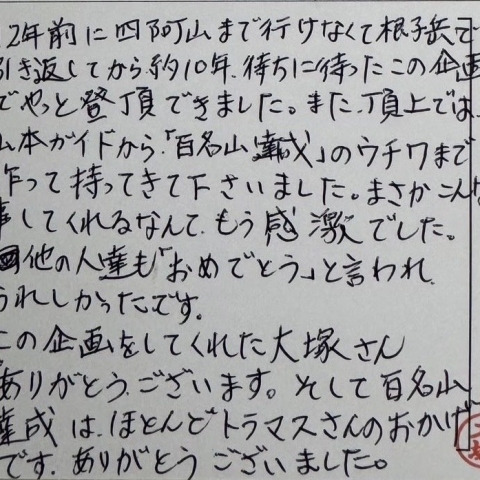 2年前に四阿山まで行けなくて根子岳で
引き返してから約10年、待ちに待ったこの企画
でやっと登頂できました。また、頂上では、
山本ガイドから、「百名山達成」のウチワまで
作って持ってきて下さいました。まさかこんな
事してくれるなんて、もう感激でした。
他の人達も「おめでとう」と言われ、
うれしかったです。
この企画をしてくれた大塚さん
ありがとうございます。そして百名山
達成は、ほとんどトラマスさんのおかげ
です。ありがとうございました。